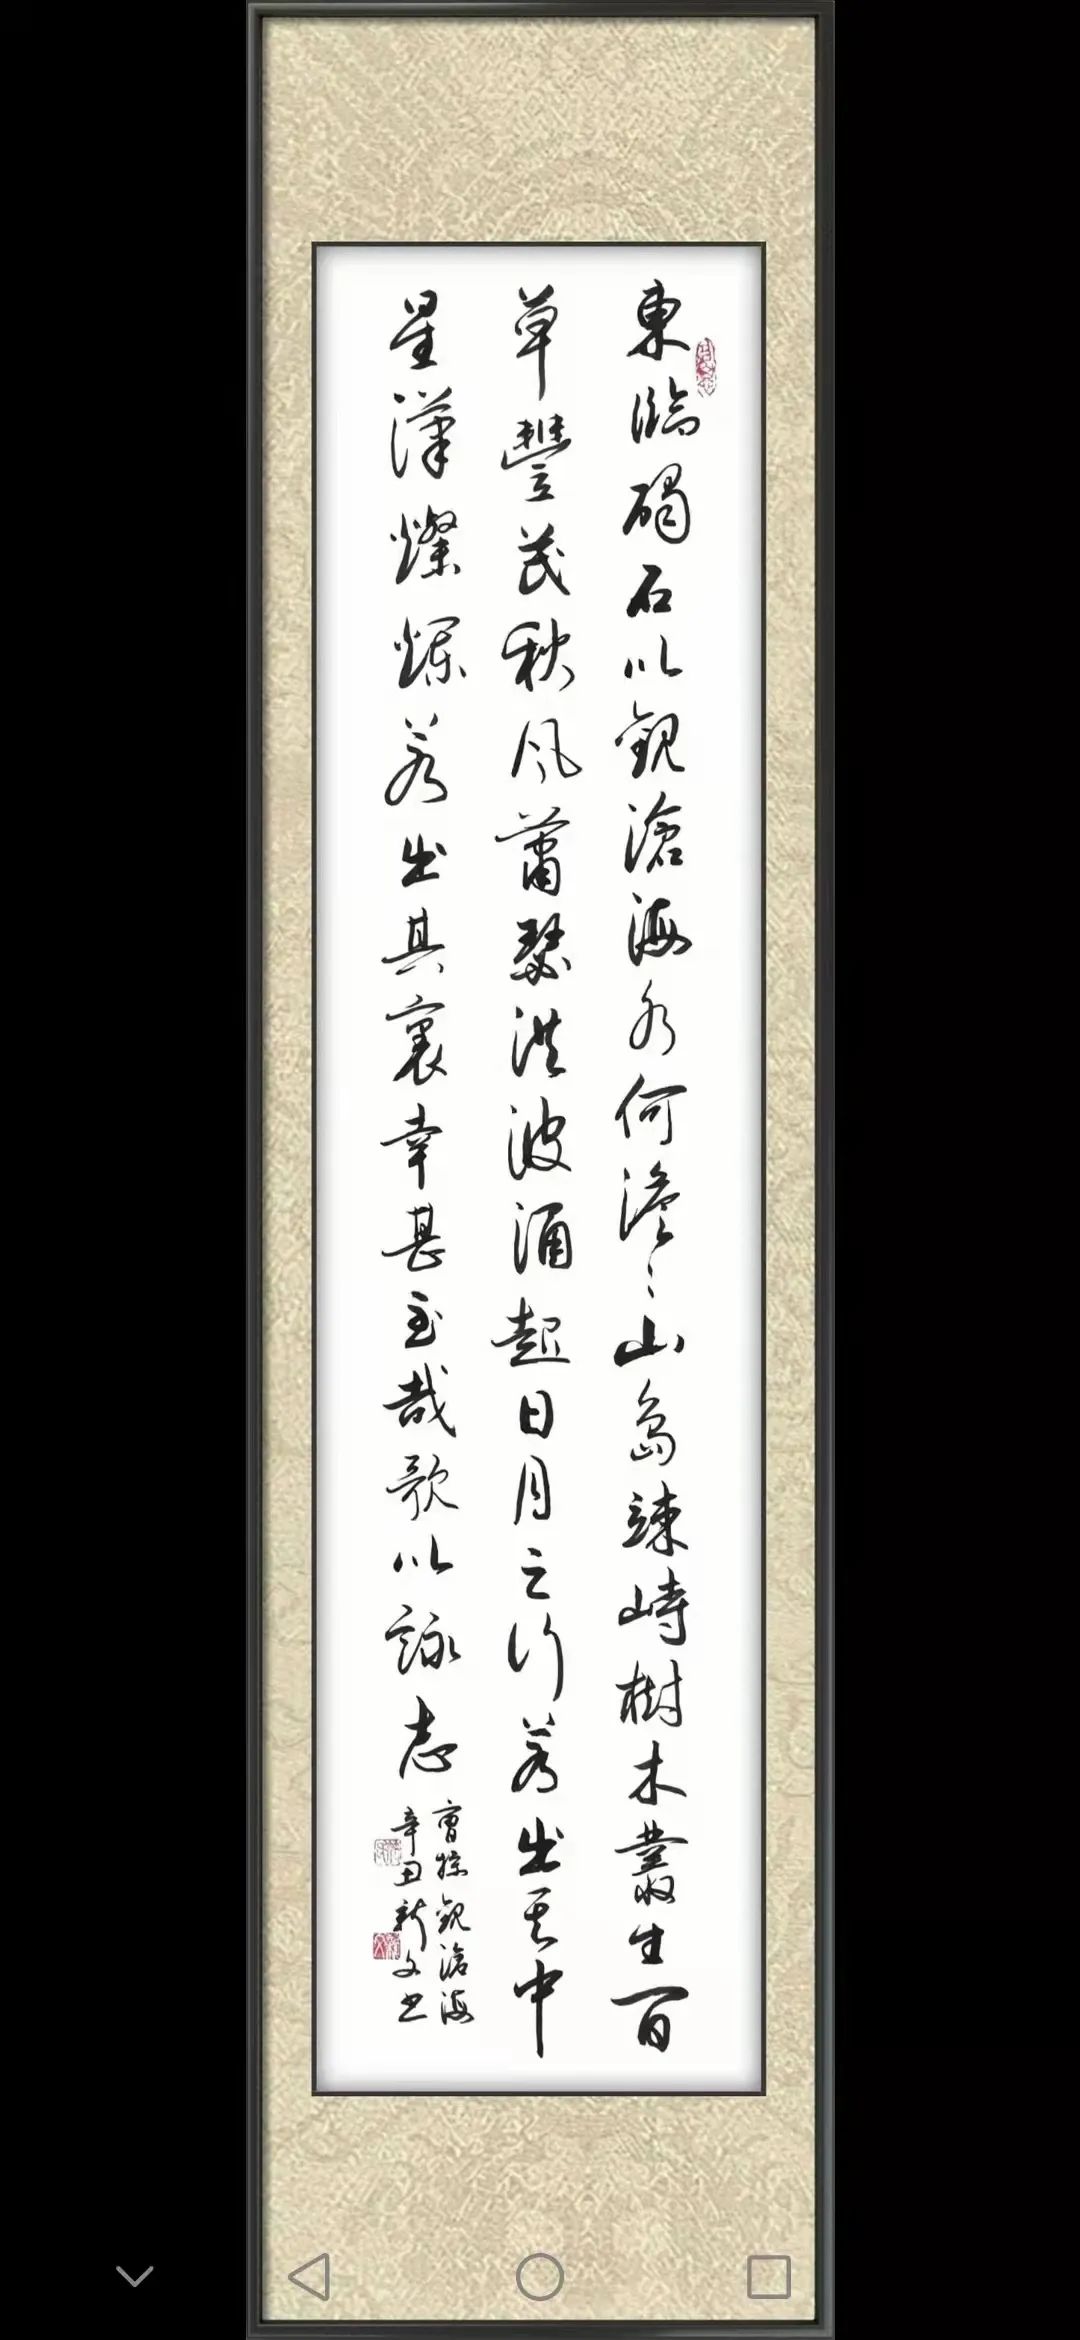 東臨碣石以觀滄海水何澹〻山島竦峙樹木叢生百
草豐茂秋风蕭瑟洪波涌起日月之行若出其中
星漢燦爛若出其裏幸甚至哉歌以詠志
曹操觀滄海
辛丑新文书